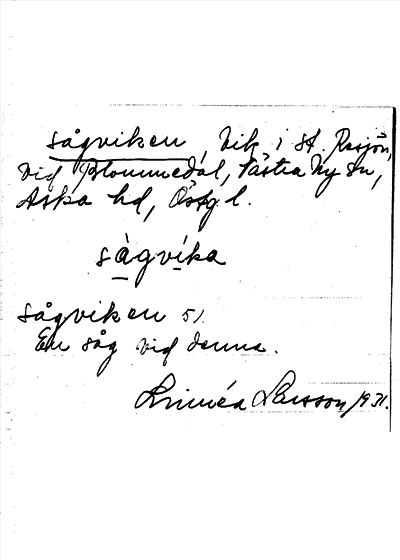 sågviken, Vik i St. Rasjön,
vid Blommedal, Västra Ny sn,
Aska hd, Östg. l.
sàgvíka
sågviken 51.
En såg vid denna.
Linnéa Larsson 1931.